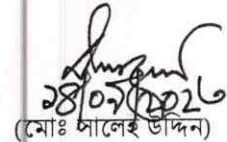 ১৪/০৯/২০২৩
(মোঃ সালেহ উদ্দিন)